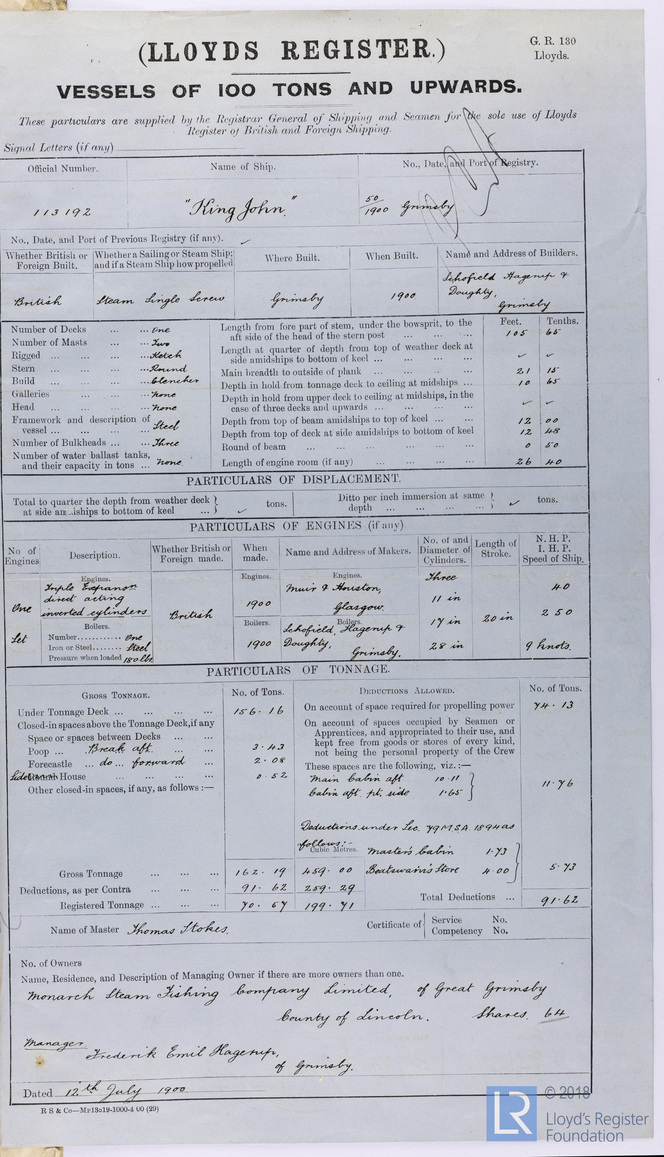 (LLOYDS REGISTER.)
G. R. 130
Lloyds.
VESSELS OF 100 TONS AND UPWARDS.
These particulars are supplied by the Registrar General of Shipping and Seamen for the sole use of Lloyds
Register of British and Foreign Shipping.
Signal Letters (if any)
Official Number. Name of Ship. No., Date, and Port of Registry.
113192 "King John." 50/1900 Grimsby
No., Date, and Port of Previous Registry (if any).
Whether British or Foreign Built. Whether a Sailing or Steam Ship; and if a Steam Ship how propelled Where Built. When Built. Name and Address of Builders.
British Steam Single Screw Grimsby 1900 Schofield Hagerup & Doughty, Grimsby
Feet. Tenths.
Number of Decks ... ... ... One
Number of Masts ... ... ... Two
Rigged ... ... ... ... Ketch
Stern ... ... ... ... Round
Build ... ... ... ... Clencher
Galleries ... ... ... None
Head ... ... ... ... None
Framework and description of vessel ... ... ... Steel
Number of Bulkheads ... ... Three
Number of water ballast tanks, and their capacity in tons ... None
Length from fore part of stem, under the bowsprit, to the aft side of the head of the stern post ... ... ... 105 65
Length at quarter of depth from top of weather deck at side amidships to bottom of keel ... ... ... ✓ ✓
Main breadth to outside of plank ... ... ... 21 15
Depth in hold from tonnage deck to ceiling at midships ... 10 65
Depth in hold from upper deck to ceiling at midships, in the case of three decks and upwards ... ... ... ✓ ✓
Depth from top of beam amidships to top of keel ... 12 00
Depth from top of deck at side amidships to bottom of keel 12 48
Round of beam ... ... ... ... 0 50
Length of engine room (if any) ... ... ... ... 26 40
PARTICULARS OF DISPLACEMENT.
Total to quarter the depth from weather deck at side amidships to bottom of keel ... ✓ tons.
Ditto per inch immersion at same depth ... ... ... ... ✓ tons.
PARTICULARS OF ENGINES (if any)
No of Engines Description. Whether British or Foreign made. When made. Name and Address of Makers. No. of and Diameter of Cylinders. Length of Stroke. N. H. P. I. H. P. Speed of Ship.
One Set
Engines.
Triple Expansn
direct acting
inverted cylinders
Boilers.
Number............ One
Iron or Steel........ Steel
Pressure when loaded 180 lbs
British
Engines.
1900
Boilers.
1900
Engines.
Muir & Houston,
Glasgow.
Boilers.
Schofield, Hagerup &
Doughty,
Grimsby.
Three
11 in
17 in
28 in
20 in
40
250
9 knots.
PARTICULARS OF TONNAGE.
GROSS TONNAGE. No. of Tons. DEDUCTIONS ALLOWED. No. of Tons.
Under Tonnage Deck ... ... ... ... 156.16
Closed-in spaces above the Tonnage Deck, if any
Space or spaces between Decks ... ...
Poop ... Break aft. ... ... 3.43
Forecastle ... do ... forward ... 2.08
House ... ... ... ... 0.52
Other closed-in spaces, if any, as follows :—
Gross Tonnage ... ... ... 162.19
Deductions, as per Contra ... ... ... 91.62
Registered Tonnage ... ... ... 70.57
On account of space required for propelling power 74.13
On account of spaces occupied by Seamen or
Apprentices, and appropriated to their use, and
kept free from goods or stores of every kind,
not being the personal property of the Crew
These spaces are the following, viz. :—
Main Cabin aft 10.11
Cabin aft. pt. side 1.65
11.76
Deductions under Sec. 79 M.S.A. 1894 as
follows:-
Cubic Metres.
459.00
259.29
199.71
Master's Cabin 1.73
Boatswain's Store 4.00
5.73
Total Deductions ... 91.62
Name of Master Thomas Stokes.
Certificate of Service No.
Competency No.
No. of Owners
Name, Residence, and Description of Managing Owner if there are more owners than one.
Monarch Steam Fishing Company Limited, of Great Grimsby
County of Lincoln. Shares. 64
Manager
Frederik Emil Hagerup,
of Grimsby.
Dated 12th July 1900.
R S & Co—Mr13a19-1000-4 00 (29)
LR
© 2018
Lloyd's Register
Foundation